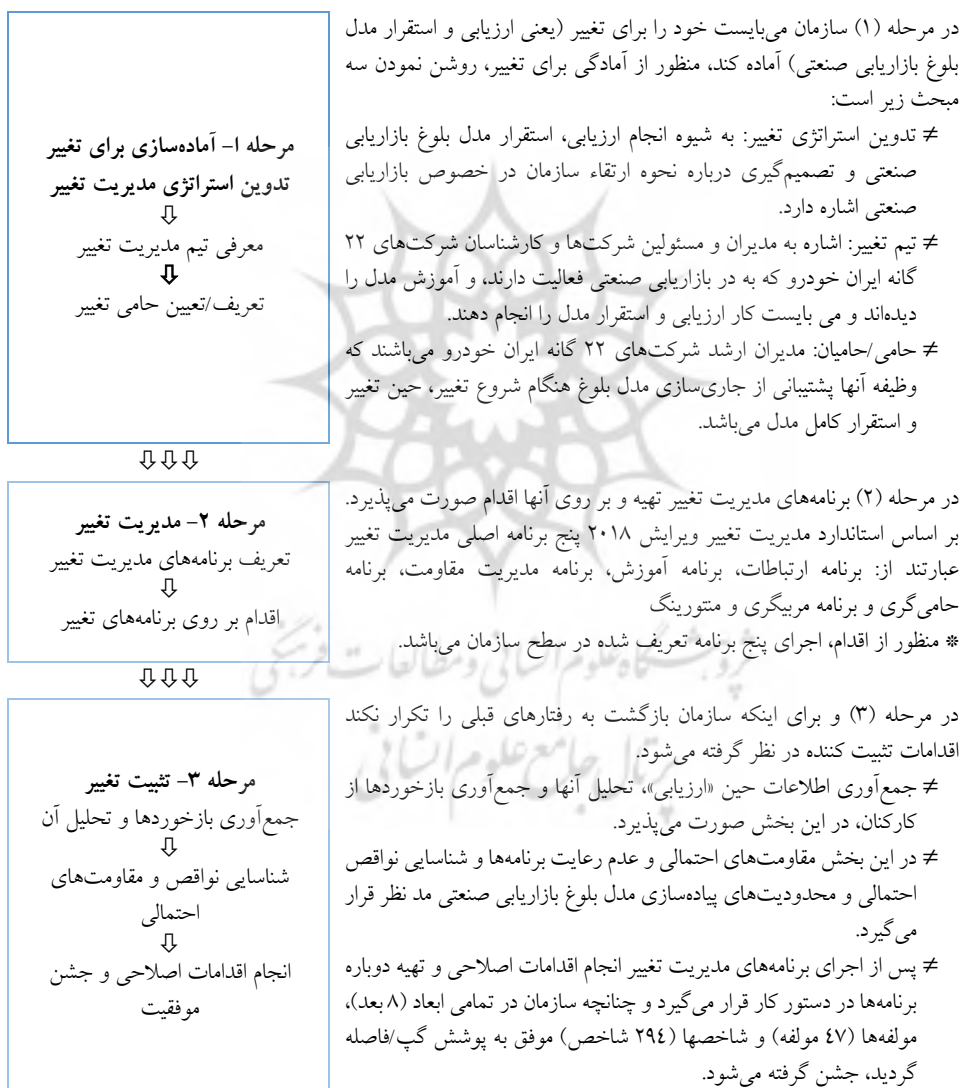 در مرحله (۱) سازمان می‌بایست خود را برای تغییر (یعنی ارزیابی و استقرار مدل
بلوغ بازاریابی صنعتی) آماده کند، منظور از آمادگی برای تغییر، روشن نمودن سه
مبحث زیر است:
≠ تدوین استراتژی تغییر: به شیوه انجام ارزیابی، استقرار مدل بلوغ بازاریابی
صنعتی و تصمیم‌گیری درباره نحوه ارتقاء سازمان در خصوص بازاریابی
صنعتی اشاره دارد.
≠ تیم تغییر: اشاره به مدیران و مسئولین شرکت‌ها و کارشناسان شرکت‌های ۲۲
گانه ایران خودرو که به در بازاریابی صنعتی فعالیت دارند، و آموزش مدل را
دیده‌اند و می بایست کار ارزیابی و استقرار مدل را انجام دهند.
≠ حامی/حامیان: مدیران ارشد شرکت‌های ۲۲ گانه ایران خودرو می‌باشند که
وظیفه آنها پشتیبانی از جاری‌سازی مدل بلوغ هنگام شروع تغییر، حین تغییر
و استقرار کامل مدل می‌باشد.
مرحله ۱- آماده‌سازی برای تغییر
تدوین استراتژی مدیریت تغییر
⇩
معرفی تیم مدیریت تغییر
⇩
تعریف/تعیین حامی تغییر
⇩⇩⇩
در مرحله (۲) برنامه‌های مدیریت تغییر تهیه و بر روی آنها اقدام صورت می‌پذیرد.
بر اساس استاندارد مدیریت تغییر ویرایش ۲۰۱۸ پنج برنامه اصلی مدیریت تغییر
عبارتند از: برنامه ارتباطات، برنامه آموزش، برنامه مدیریت مقاومت، برنامه
حامی‌گری و برنامه مربیگری و منتورینگ
* منظور از اقدام، اجرای پنج برنامه تعریف شده در سطح سازمان می‌باشد.
مرحله ۲- مدیریت تغییر
تعریف برنامه‌های مدیریت تغییر
⇩
اقدام بر روی برنامه‌های تغییر
⇩⇩⇩
در مرحله (۳) و برای اینکه سازمان بازگشت به رفتارهای قبلی را تکرار نکند
اقدامات تثبیت کننده در نظر گرفته می‌شود.
≠ جمع‌آوری اطلاعات حین «ارزیابی»، تحلیل آنها و جمع‌آوری بازخوردها از
کارکنان، در این بخش صورت می‌پذیرد.
≠ در این بخش مقاومت‌های احتمالی و عدم رعایت برنامه‌ها و شناسایی نواقص
احتمالی و محدودیت‌های پیاده‌سازی مدل بلوغ بازاریابی صنعتی مد نظر قرار
می‌گیرد.
≠ پس از اجرای برنامه‌های مدیریت تغییر انجام اقدامات اصلاحی و تهیه دوباره
برنامه‌ها در دستور کار قرار می‌گیرد و چنانچه سازمان در تمامی ابعاد (۸ بعد)،
مولفه‌ها (۴۷ مولفه) و شاخصها (۲۹۴ شاخص) موفق به پوشش گپ/فاصله
گردید، جشن گرفته می‌شود.
مرحله ۳- تثبیت تغییر
جمع‌آوری بازخوردها و تحلیل آن
⇩
شناسایی نواقص و مقاومت‌های
احتمالی
⇩
انجام اقدامات اصلاحی و جشن
موفقیت
پژوهشگاه علوم انسانی و مطالعات فرهنگی
پرتال جامع علوم انسانی